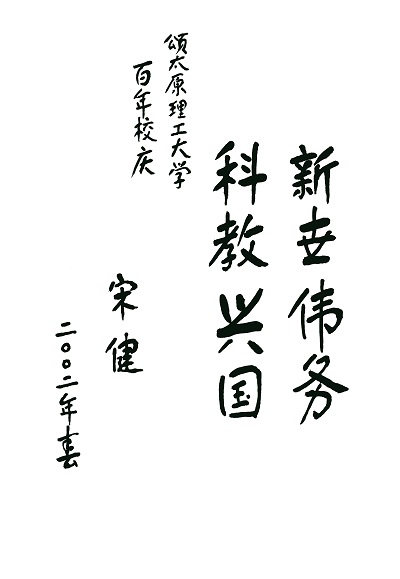 新世伟务
科教兴国
颂太原理工大学
百年校庆
宋健
二〇〇二年春